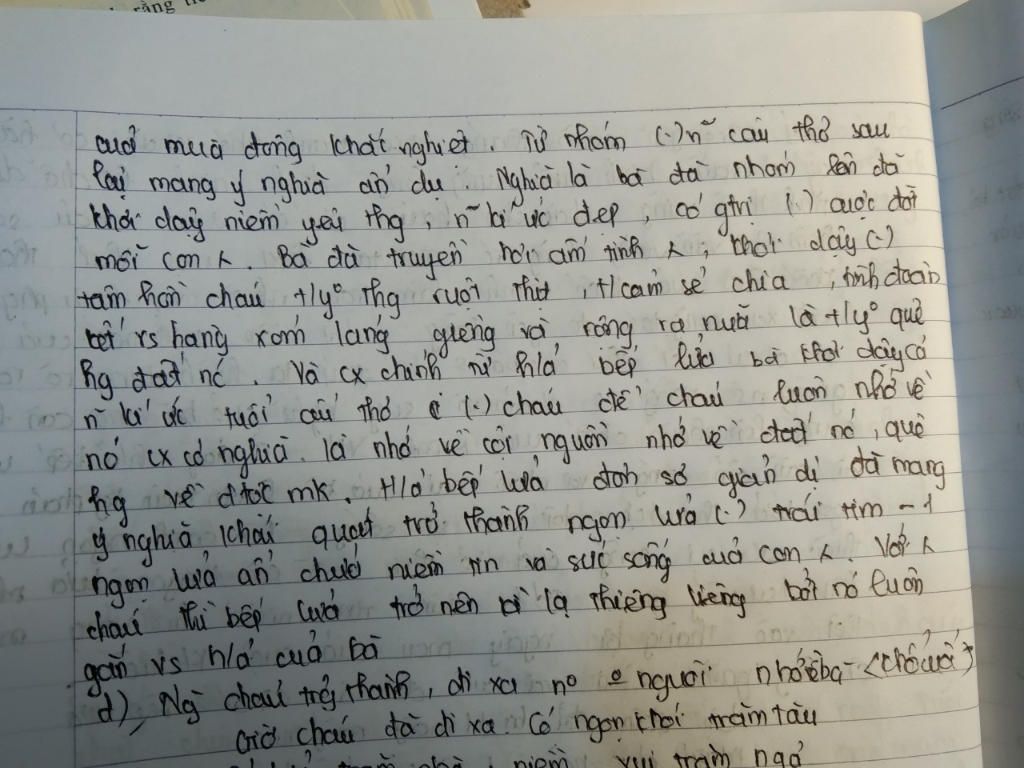 rằng
cuả mùa đông khắc nghiệt. Từ nhóm (.) n~ câu thơ sau
lại mang ý nghĩa ẩn dụ. Nghĩa là bà đã nhóm lên đã
khơi dạy niềm yêu thg, n~ kí ức đẹp, có gtrị (.) cuộc đời
mỗi con λ. Bà đã truyền hơi ấm tình λ, khơi dậy (.)
tâm hồn cháu t/y° thg ruột thịt, t/cảm sẻ chia, tình đoàn
kết vs hàng xóm láng giềng và, rộng ra nữa là t/y° quê
hg đất nc. Và cx chính từ h/ả bếp lửa bà khơi dậy cả
n~ kí ức tuổi ấu thơ (.) cháu để cháu luôn nhớ về
nó cx có nghĩa là nhớ về cội nguồn nhớ về đất nc, quê
hg về dtộc mk. H/ả bếp lửa đơn sơ giản dị đã mang
ý nghĩa khái quát trở thành ngọn lửa (.) trái tim - 1
ngọn lửa ẩn chứa niềm tin và sức sống cuả con λ. Với λ
cháu thì bếp lửa trở nên kì lạ thiêng liêng bởi nó luôn
gắn vs h/ả cuả bà
d), Ng cháu trg thành, đi xa n° người nhớ bà - <khổ cuối>
Giờ cháu đã đi xa. Có ngọn khói trăm tàu
niềm vui trăm ngả